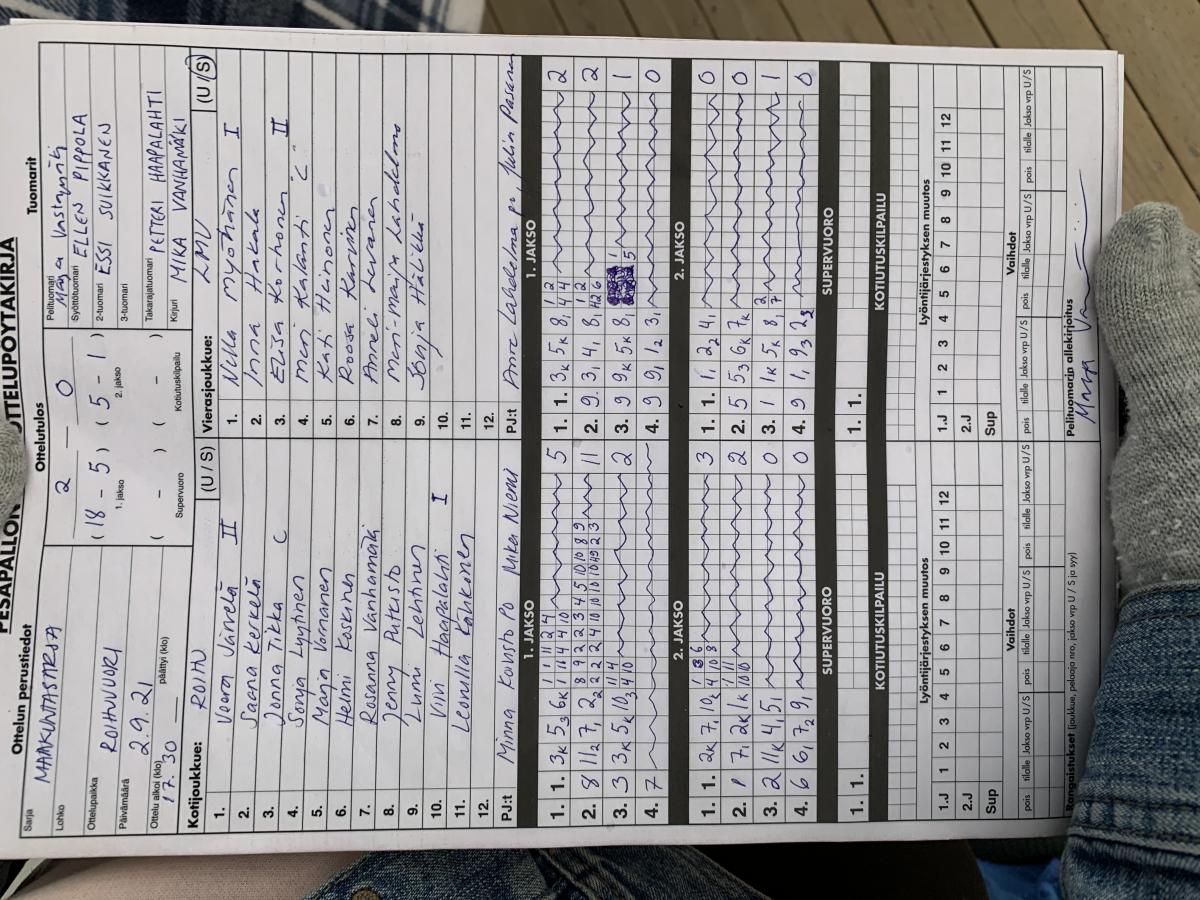 PESÄPALLON OTTELUPÖYTÄKIRJA
Ottelun perustiedot
Ottelutulos
Tuomarit
Sarja
MAAKUNTASARJA
Lohko
Ottelupaikka
ROIHUVUORI
Päivämäärä
2.9.21
Ottelu alkoi (klo)
17.30
päättyi (klo)
2 — 0
( 18 - 5 ) ( 5 - 1 )
1. jakso 2. jakso
( - ) ( - )
Supervuoro Kotiutuskilpailu
Pelituomari
Syöttötuomari
ELLEN PIPPOLA
2-tuomari
ESSI SUIKKANEN
3-tuomari
Takarajatuomari
PETTERI HAAPALAHTI
Kirjuri
MIKA VANHAMÄKI
Kotijoukkue: ROIHU (U / S)
1. Veera Järvelä II
2. Saana Kerkelä
3. Jonna Tikka C
4. Sonja Lyytinen
5. Marja Vornanen
6. Helmi Koskinen
7. Rosanna Vanhamäki
8. Jenny Putkisto
9. Lumi Lehtinen
10. Viivi Haapalahti I
11. Leonilla Kähkönen
12.
PJ:t Minna Koivisto PO Mika Niemi
Vierasjoukkue: LMV (U / S)
1. Nella Myöhänen I
2. Inna Hakala
3. Elisa Korhonen II
4. Meri Kalanti "C"
5. Kati Heinonen
6. Roosa
7. Anneli Levanen
8. Meri-Maija Lahdelma
9. Sonja Hälikkä
10.
11.
12.
PJ:t Anne Lahdelma po, Julin Pasanen
1. JAKSO
1. 1. 3k 53 6k 5
2. 8 112 71 22 11
3. 3 3k 5k 103 2
4. 7
1. JAKSO
1. 1. 3k 5k 81 2
2. 9 31 41 81 2
3. 9 9k 5k 81 1
4. 9 91 12 31 0
2. JAKSO
1. 1. 2k 71 10k 3
2. 1 71 2k 1k 2
3. 2 11k 41 51 0
4. 6 61 72 91 0
2. JAKSO
1. 1. 11 22 41 0
2. 5 53 6k 7k 0
3. 1 1k 5k 81 1
4. 9 11 93 0
SUPERVUORO
1. 1.
SUPERVUORO
1. 1.
KOTIUTUSKILPAILU
KOTIUTUSKILPAILU
Lyöntijärjestyksen muutos
1.J 1 2 3 4 5 6 7 8 9 10 11 12
2.J
Sup
Lyöntijärjestyksen muutos
1.J 1 2 3 4 5 6 7 8 9 10 11 12
2.J
Sup
Vaihdot
pois tilalle Jakso vrp U / S pois tilalle Jakso vrp U / S pois tilalle Jakso vrp U / S
Vaihdot
pois tilalle Jakso vrp U / S pois tilalle Jakso vrp U / S pois tilalle Jakso vrp U / S
Rangaistukset (joukkue, pelaaja nro, jakso vrp U / S ja syy)
Pelituomarin allekirjoitus